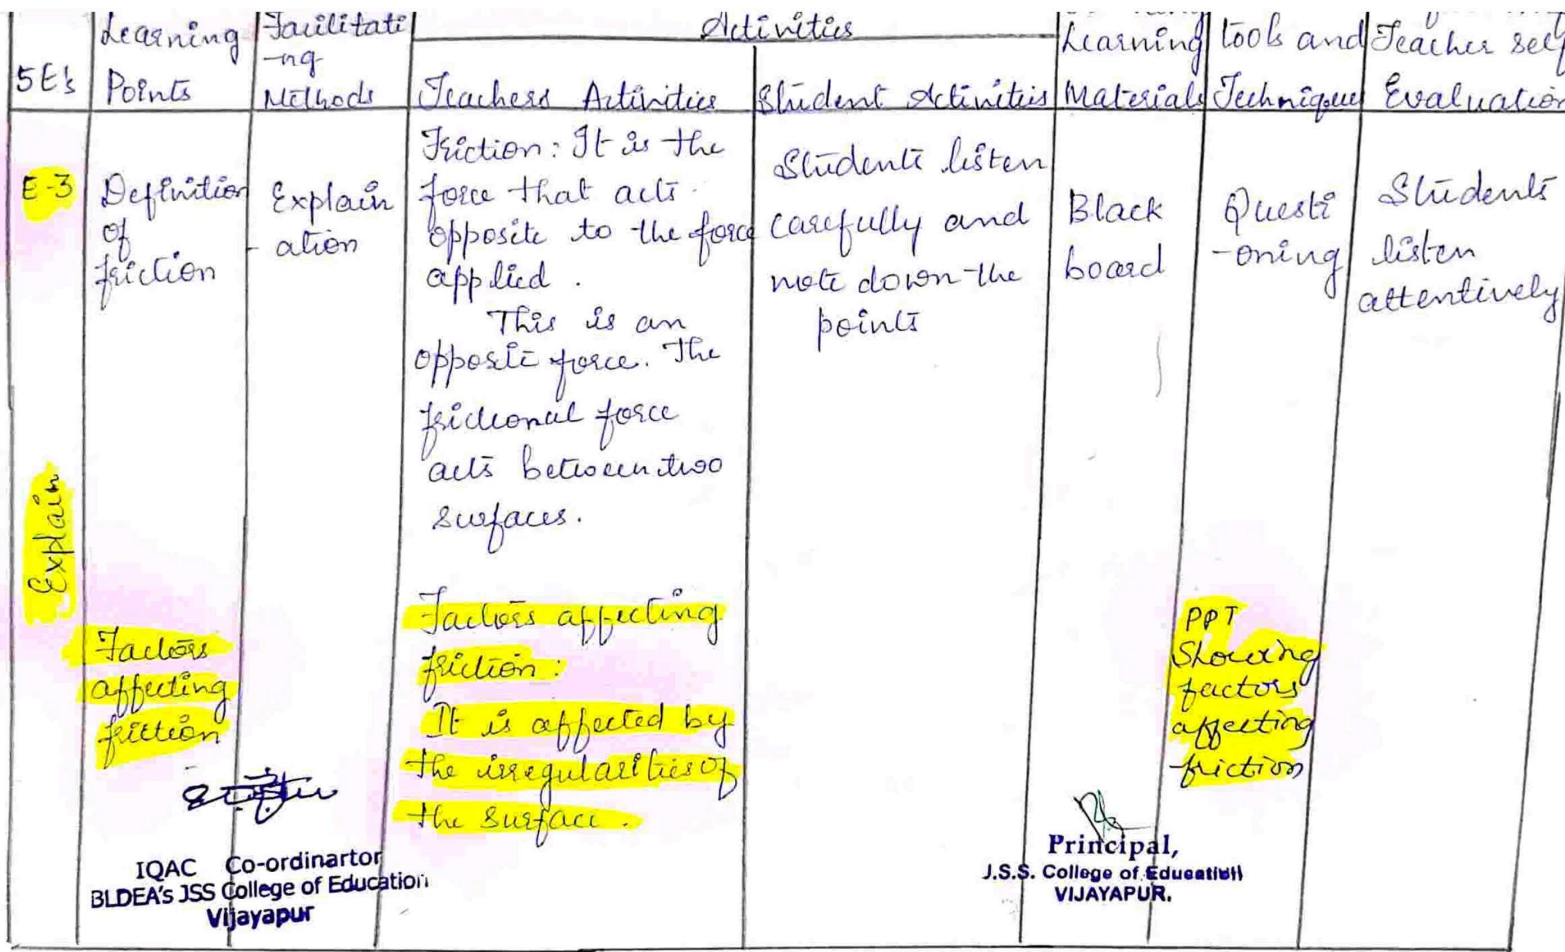 5E's
Learning
Points
Facilitati
-ng
Methods
Activities
Teachers Activities
Student Activities
Learning
Materials
tools and
Techniques
Teacher self
Evaluation
E-3
Explain
Definition
of
friction
Explain
- ation
Friction: It is the
force that acts
opposite to the force
applied.
This is an
opposite force. The
frictional force
acts between two
surfaces.
Students listen
carefully and
note down the
points
Black
board
Questi
-oning
Students
listen
attentively
Factors
affecting
friction
Factors affecting
friction:
It is affected by
the irregularities of
the surface.
PPT
Showing
factors
affecting
friction
IQAC Co-ordinartor
BLDEA's JSS College of Education
Vijayapur
Principal,
J.S.S. College of Education
VIJAYAPUR.